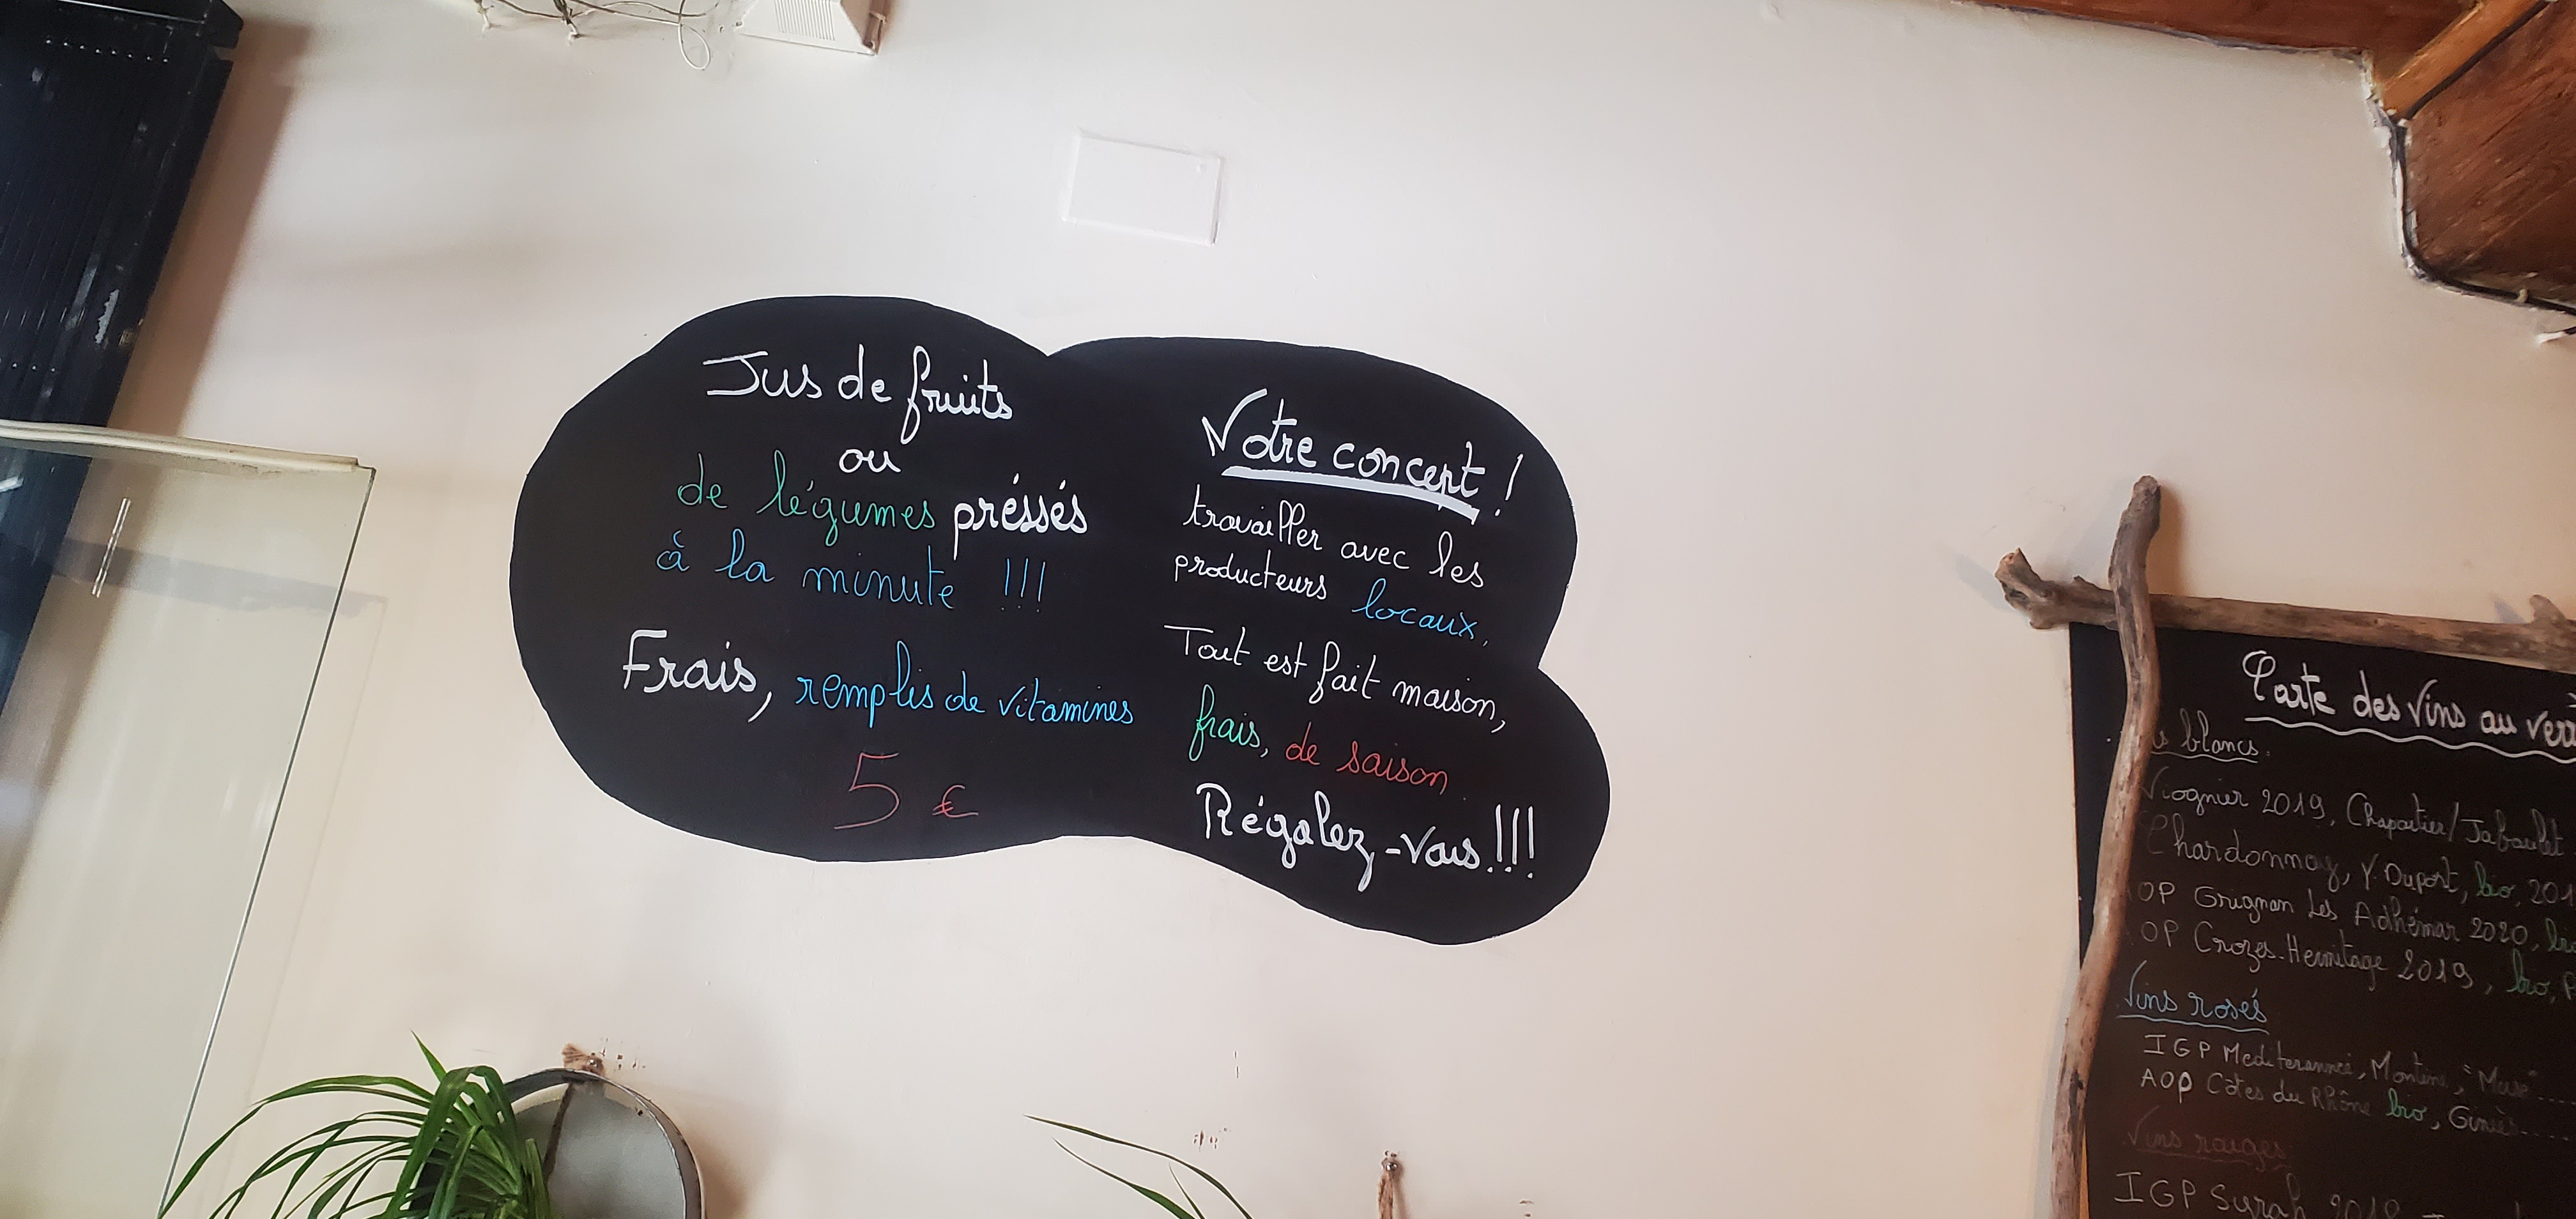 Jus de fruits
ou
de légumes préssés
à la minute !!!
Frais, remplis de vitamines
5 €
Notre concept !
travailler avec les
producteurs locaux,
Tout est fait maison,
frais, de saison
Régalez-vous !!!
Carte des vins au
blancs.
Viognier 2019, Chapoutier/Jaboulet
Chardonnay, Y. Duport, bio,
OP Grignan Les Adhémar 2020,
OP Crozes-Hermitage 2019, bio,
Vins rosés
IGP Mediterannée, Montine, "Muse"
AOP Côtes du Rhône bio,
Vins rouges
IGP Syrah